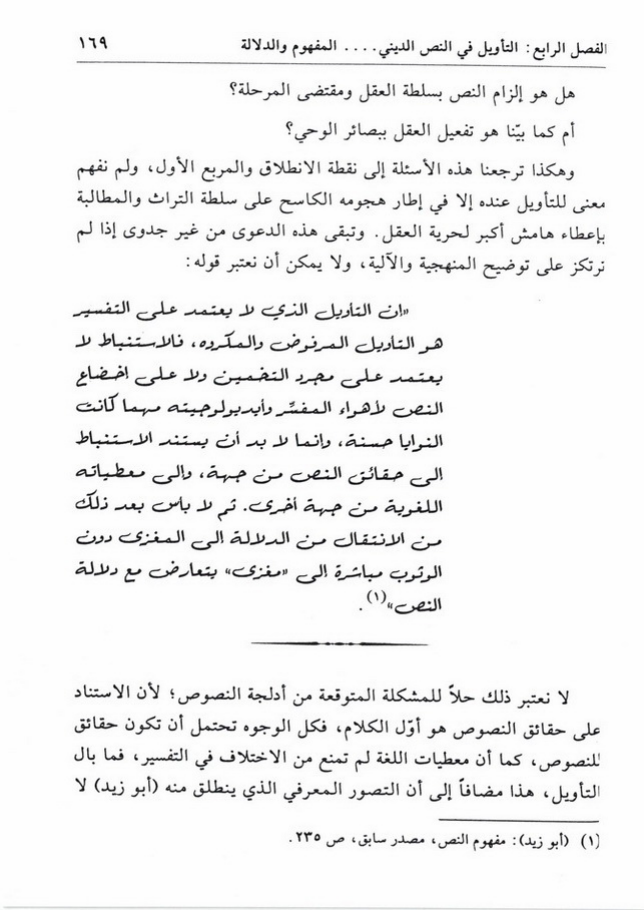 الفصل الرابع: التأويل في النص الديني.... المفهوم والدلالة ١٦٩
هل هو إلزام النص بسلطة العقل ومقتضى المرحلة؟
أم كما بيّنا هو تفعيل العقل ببصائر الوحي؟
وهكذا ترجعنا هذه الأسئلة إلى نقطة الانطلاق والمربع الأول، ولم نفهم
معنى للتأويل عنده إلا في إطار هجومه الكاسح على سلطة التراث والمطالبة
بإعطاء هامش أكبر لحرية العقل. وتبقى هذه الدعوى من غير جدوى إذا لم
نرتكز على توضيح المنهجية والآلية، ولا يمكن أن نعتبر قوله:
«إن التأويل الذي لا يعتمد على التفسير
هو التأويل المرفوض والمكروه، فالاستنباط لا
يعتمد على مجرد التخمين ولا على اخضاع
النص لأهواء المفسِّر وأيديولوجيته مهما كانت
النوايا حسنة، وانما لا بد أن يستند الاستنباط
إلى حقائق النص من جهة، وإلى معطياته
اللغوية من جهة أخرى. ثم لا بأس بعد ذلك
من الانتقال من الدلالة الى المغزى دون
الوثوب مباشرة إلى «مغزى» يتعارض مع دلالة
النص»(١).
لا نعتبر ذلك حلاً للمشكلة المتوقعة من أدلجة النصوص؛ لأن الاستناد
على حقائق النصوص هو أوّل الكلام، فكل الوجوه تحتمل أن تكون حقائق
للنصوص، كما أن معطيات اللغة لم تمنع من الاختلاف في التفسير، فما بال
التأويل، هذا مضافاً إلى أن التصور المعرفي الذي ينطلق منه (أبو زيد) لا
(١) (أبو زيد): مفهوم النص، مصدر سابق، ص ٢٣٥.